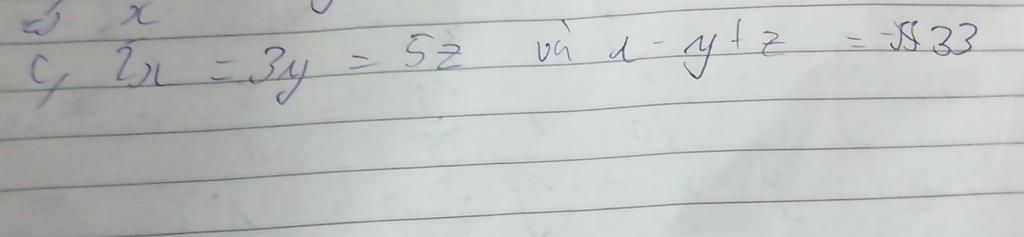 x
c, 2x = 3y = 5z và x - y + z = -33